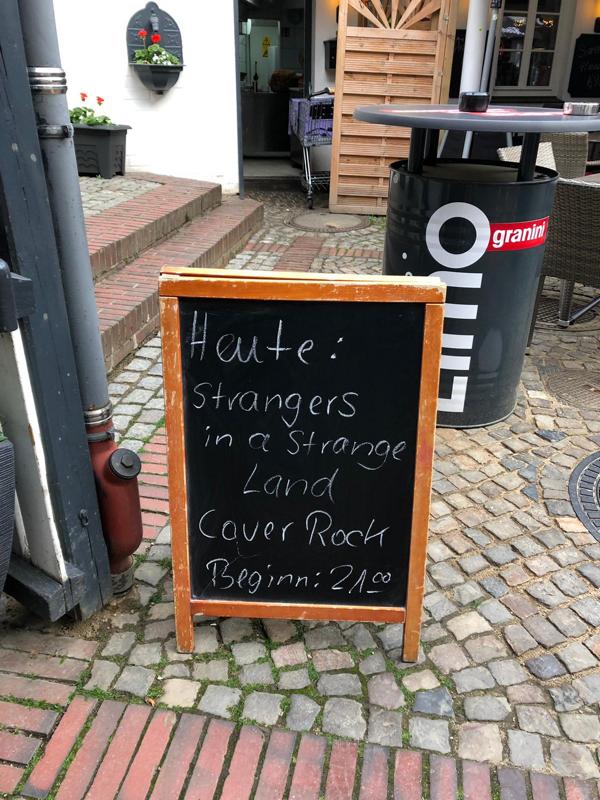 LIMO
granini
Heute:
Strangers
in a Strange
Land
Cover Rock
Beginn: 21⁰⁰